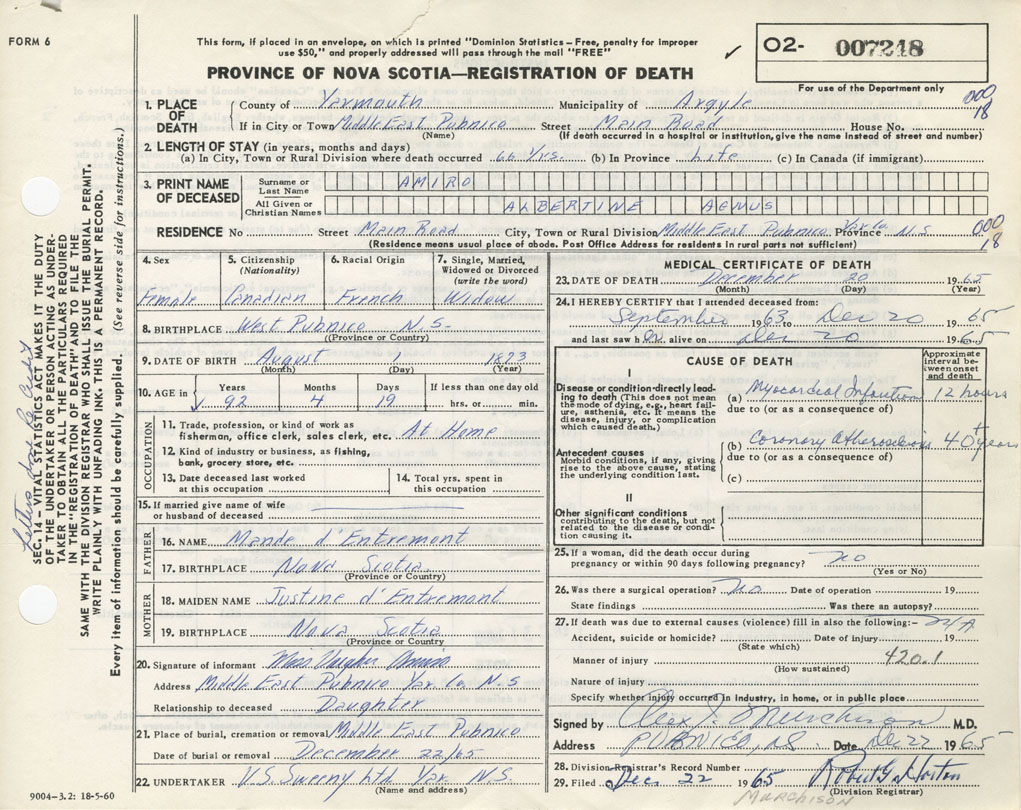 FORM 6
This form, if placed in an envelope, on which is printed "Dominion Statistics – Free, penalty for improper
use $50," and properly addressed will pass through the mail "FREE"
✓ O2- 007218
PROVINCE OF NOVA SCOTIA—REGISTRATION OF DEATH
For use of the Department only
000
18
1. PLACE OF DEATH
County of Yarmouth Municipality of Argyle
If in City or Town Middle East Pubnico Street Main Road House No.
(Name) (If death occurred in a hospital or institution, give the name instead of street and number)
2. LENGTH OF STAY (in years, months and days)
(a) In City, Town or Rural Division where death occurred 66 Yrs. (b) In Province Life (c) In Canada (if immigrant)
3. PRINT NAME OF DECEASED
Surname or Last Name AMIRO
All Given or Christian Names ALBERTINE AGNUS
RESIDENCE No Street Main Road City, Town or Rural Division Middle East Pubnico Yar Co. Province N.S
(Residence means usual place of abode. Post Office Address for residents in rural parts not sufficient)
000
18
4. Sex Female
5. Citizenship (Nationality) Canadian
6. Racial Origin French
7. Single, Married, Widowed or Divorced (write the word) Widow
8. BIRTHPLACE West Pubnico N.S-
(Province or Country)
9. DATE OF BIRTH August 1 1873
(Month) (Day) (Year)
10. AGE in Years Months Days If less than one day old
92 4 19 hrs. or min.
OCCUPATION
11. Trade, profession, or kind of work as
fisherman, office clerk, sales clerk, etc. At Home
12. Kind of industry or business, as fishing,
bank, grocery store, etc.
13. Date deceased last worked at this occupation
14. Total yrs. spent in this occupation
15. If married give name of wife
or husband of deceased
FATHER
16. NAME Mande d'Entremont
17. BIRTHPLACE Nova Scotia
(Province or Country)
MOTHER
18. MAIDEN NAME Justine d'Entremont
19. BIRTHPLACE Nova Scotia
(Province or Country)
20. Signature of informant Miss
Address Middle East Pubnico Yar Co N.S
Relationship to deceased Daughter
21. Place of burial, cremation or removal Middle East Pubnico
Date of burial or removal December 22/65
22. UNDERTAKER V.S. Sweeny Ltd. Yar. N.S.
(Name and address)
9004-3.2: 18-5-60
MEDICAL CERTIFICATE OF DEATH
23. DATE OF DEATH December 20 1965
(Month) (Day) (Year)
24. I HEREBY CERTIFY that I attended deceased from:
September 1963 to Dec 20 1965
and last saw her alive on Dec 20 1965
CAUSE OF DEATH
Approximate interval between onset and death
I
Disease or condition directly leading
to death (This does not mean
the mode of dying, e.g., heart failure,
asthenia, etc. It means the
disease, injury, or complication
which caused death.)
(a) Myocardial Infarction 12 hours
due to (or as a consequence of)
Antecedent causes
Morbid conditions, if any, giving
rise to the above cause, stating
the underlying condition last.
(b) Coronary Atherosclerosis 40+ years
due to (or as a consequence of)
(c)
II
Other significant conditions
contributing to the death, but not
related to the disease or condition
causing it.
25. If a woman, did the death occur during
pregnancy or within 90 days following pregnancy? no
(Yes or No)
26. Was there a surgical operation? no Date of operation 19
State findings Was there an autopsy?
27. If death was due to external causes (violence) fill in also the following:– N/A
Accident, suicide or homicide? Date of injury 19
(State which)
Manner of injury 420.1
(How sustained)
Nature of injury
Specify whether injury occurred in Industry, in home, or in public place
Signed by Alex J. Murchison M.D.
Address PUBNICO, NS Date Dec 22 1965
28. Division Registrar's Record Number
29. Filed Dec 22 1965 Robert G. Horton
(Division Registrar)
MURCHISON
SEC. 14 – VITAL STATISTICS ACT MAKES IT THE DUTY
OF THE UNDERTAKER OR PERSON ACTING AS UNDER-
TAKER TO OBTAIN ALL THE PARTICULARS REQUIRED
IN THE "REGISTRATION OF DEATH" AND TO FILE THE
SAME WITH THE DIVISION REGISTRAR WHO SHALL ISSUE THE BURIAL PERMIT.
WRITE PLAINLY WITH UNFADING INK. THIS IS A PERMANENT RECORD.
Every item of information should be carefully supplied. (See reverse side for instructions.)